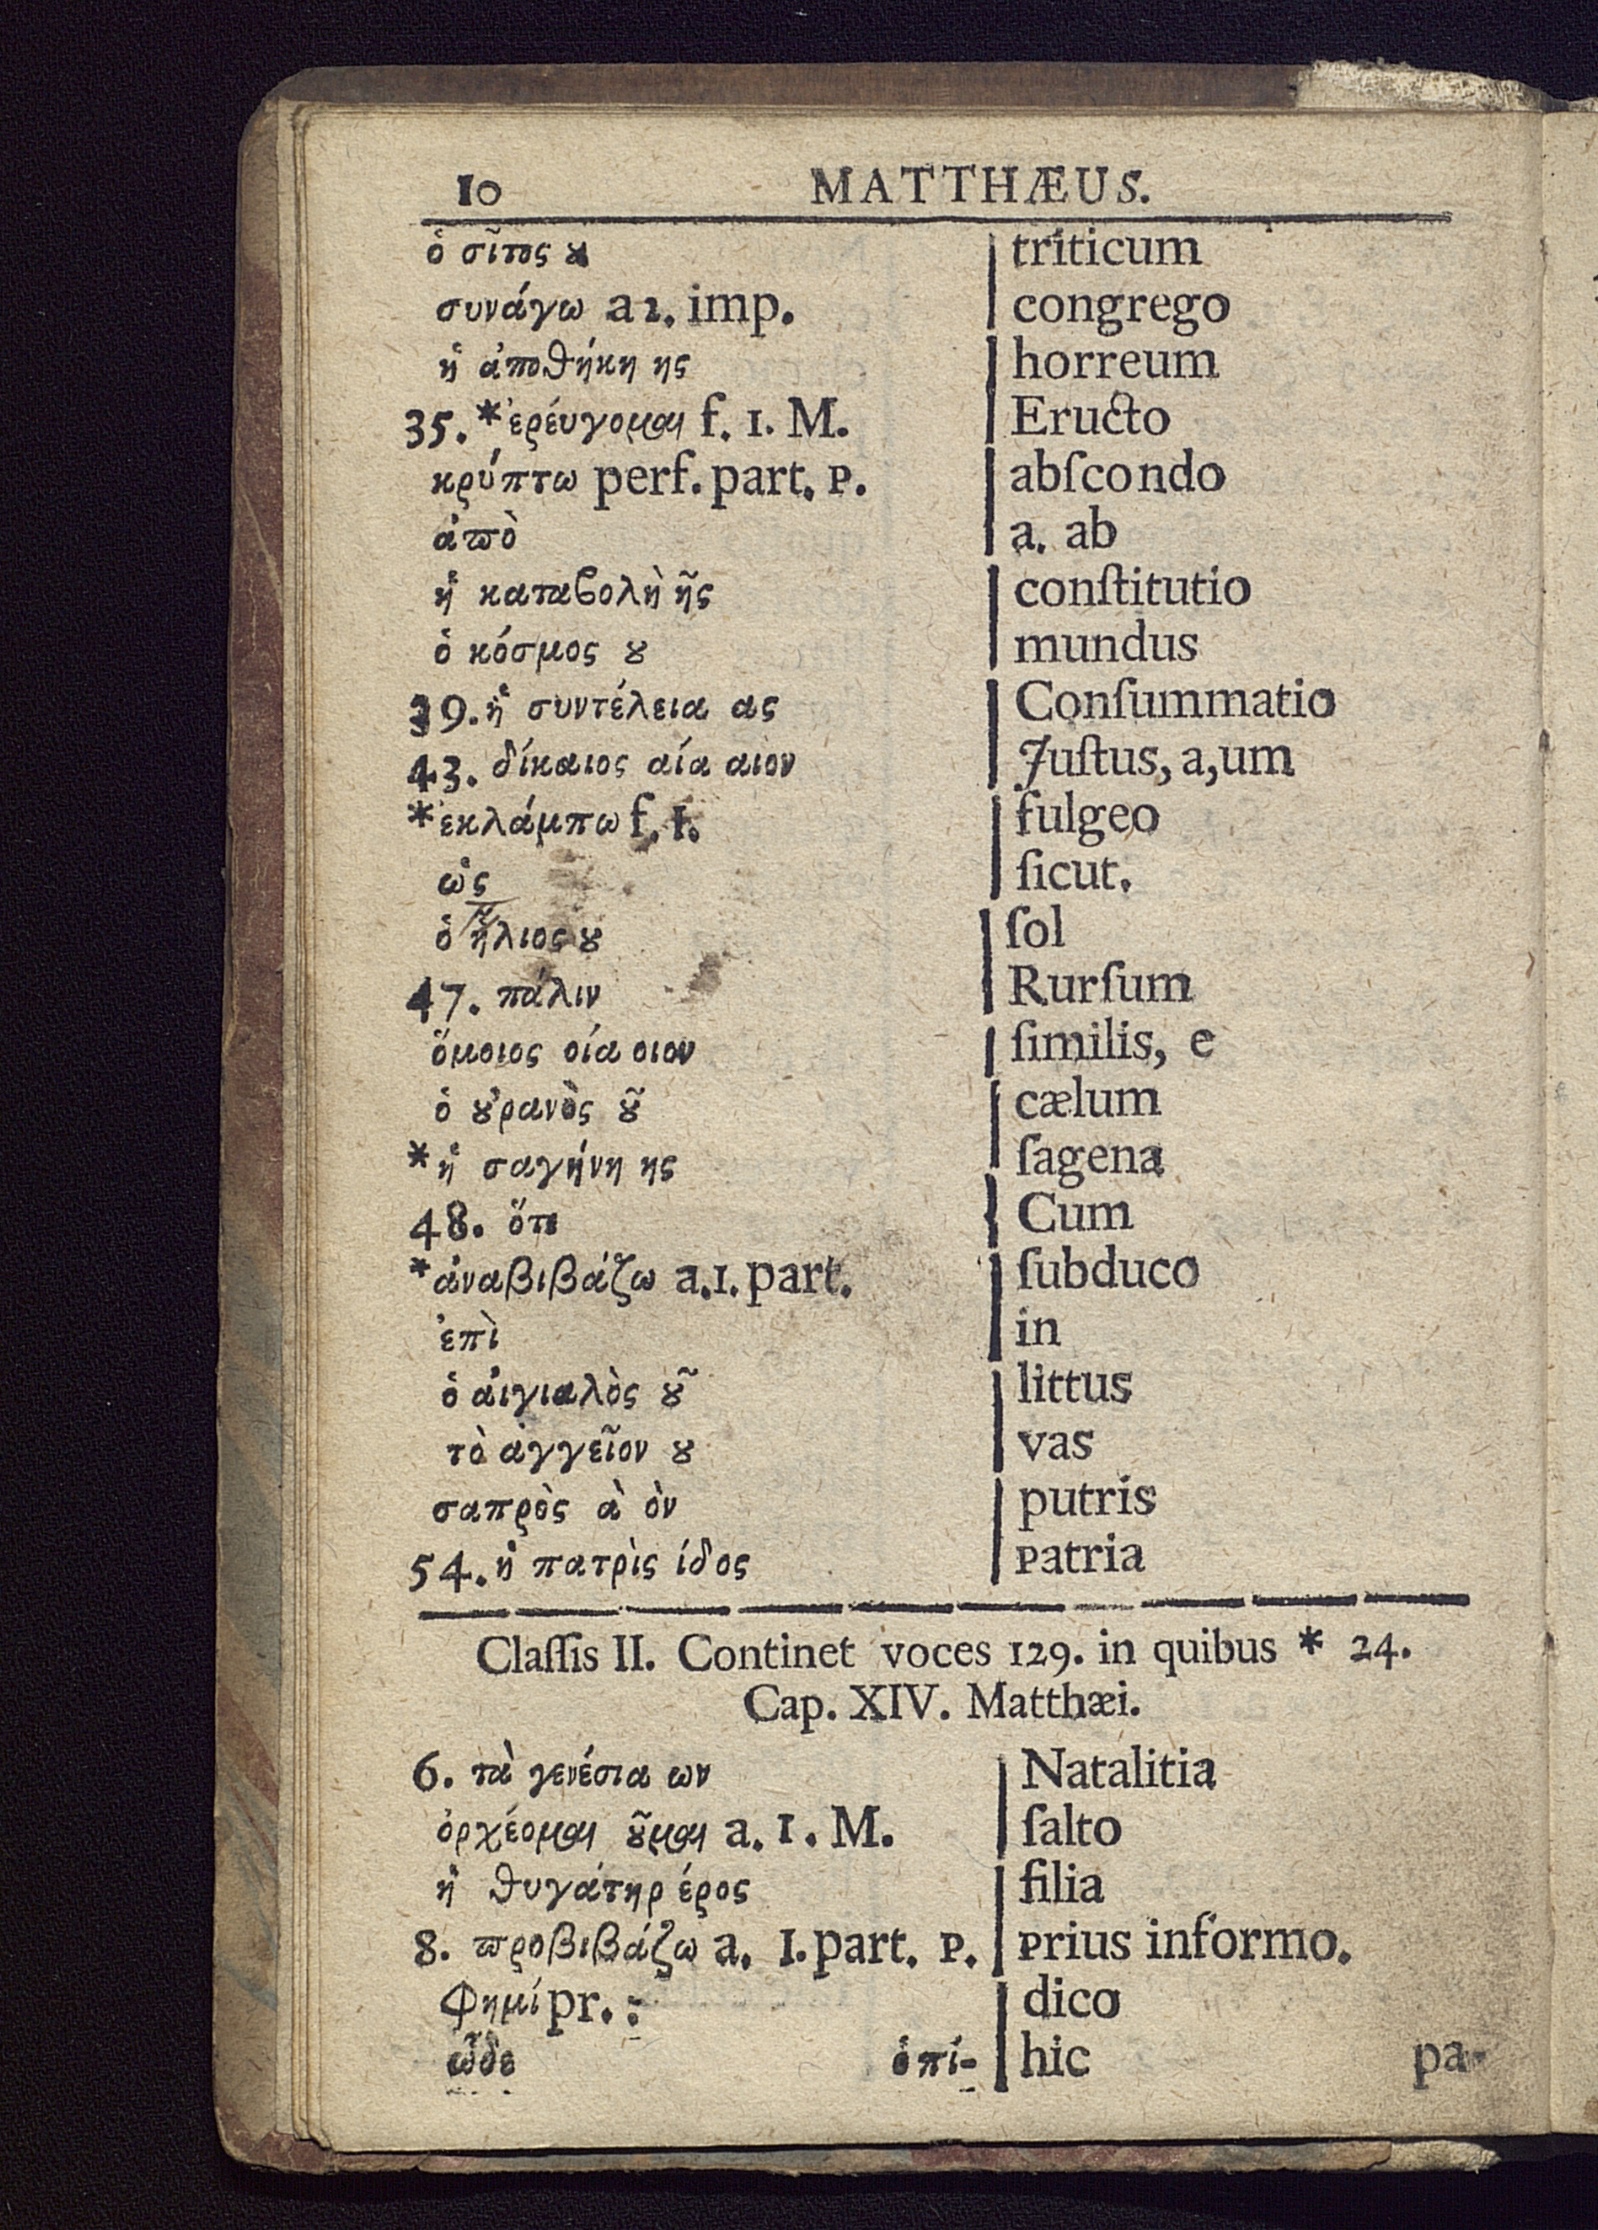 10 MATTHÆUS.
ὁ σῖτος ȣ triticum
συνάγω a 2. imp. congrego
ἡ ἀποθήκη ης horreum
35. *ἐρέυγομαι f. 1. M. Eructo
κρύπτω perf. part. P. abſcondo
ἀπὸ a. ab
ἡ καταβολὴ ῆς conſtitutio
ὁ κόσμος ȣ mundus
39. ἡ συντέλεια ας Conſummatio
43. δίκαιος αία αιον Juſtus, a, um
*ἐκλάμπω f. 1. fulgeo
ὡς ſicut.
ὁ ἥλιος ȣ ſol
47. πάλιν Rurſum
ὅμοιος οία οιον ſimilis, e
ὁ ȣ̓ρανὸς ȣ͂ cælum
*ἡ σαγήνη ης ſagena
48. ὅτε Cum
*ἀναβιβάζω a. 1. part. ſubduco
ἐπὶ in
ὁ αἰγιαλὸς ȣ͂ littus
τὸ ἀγγεῖον ȣ vas
σαπρὸς ὰ ὸν putris
54. ἡ πατρὶς ίδος Patria
Claſſis II. Continet voces 129. in quibus * 24.
Cap. XIV. Matthæi.
6. τὰ γενέσια ων Natalitia
ὀρχέομαι ȣ͂μαι a. 1. M. ſalto
ἡ θυγάτηρ έρος filia
8. προβιβάζω a. 1. part. P. Prius informo.
φημί pr. : dico
ὧδε hic
ὁπί- pa-